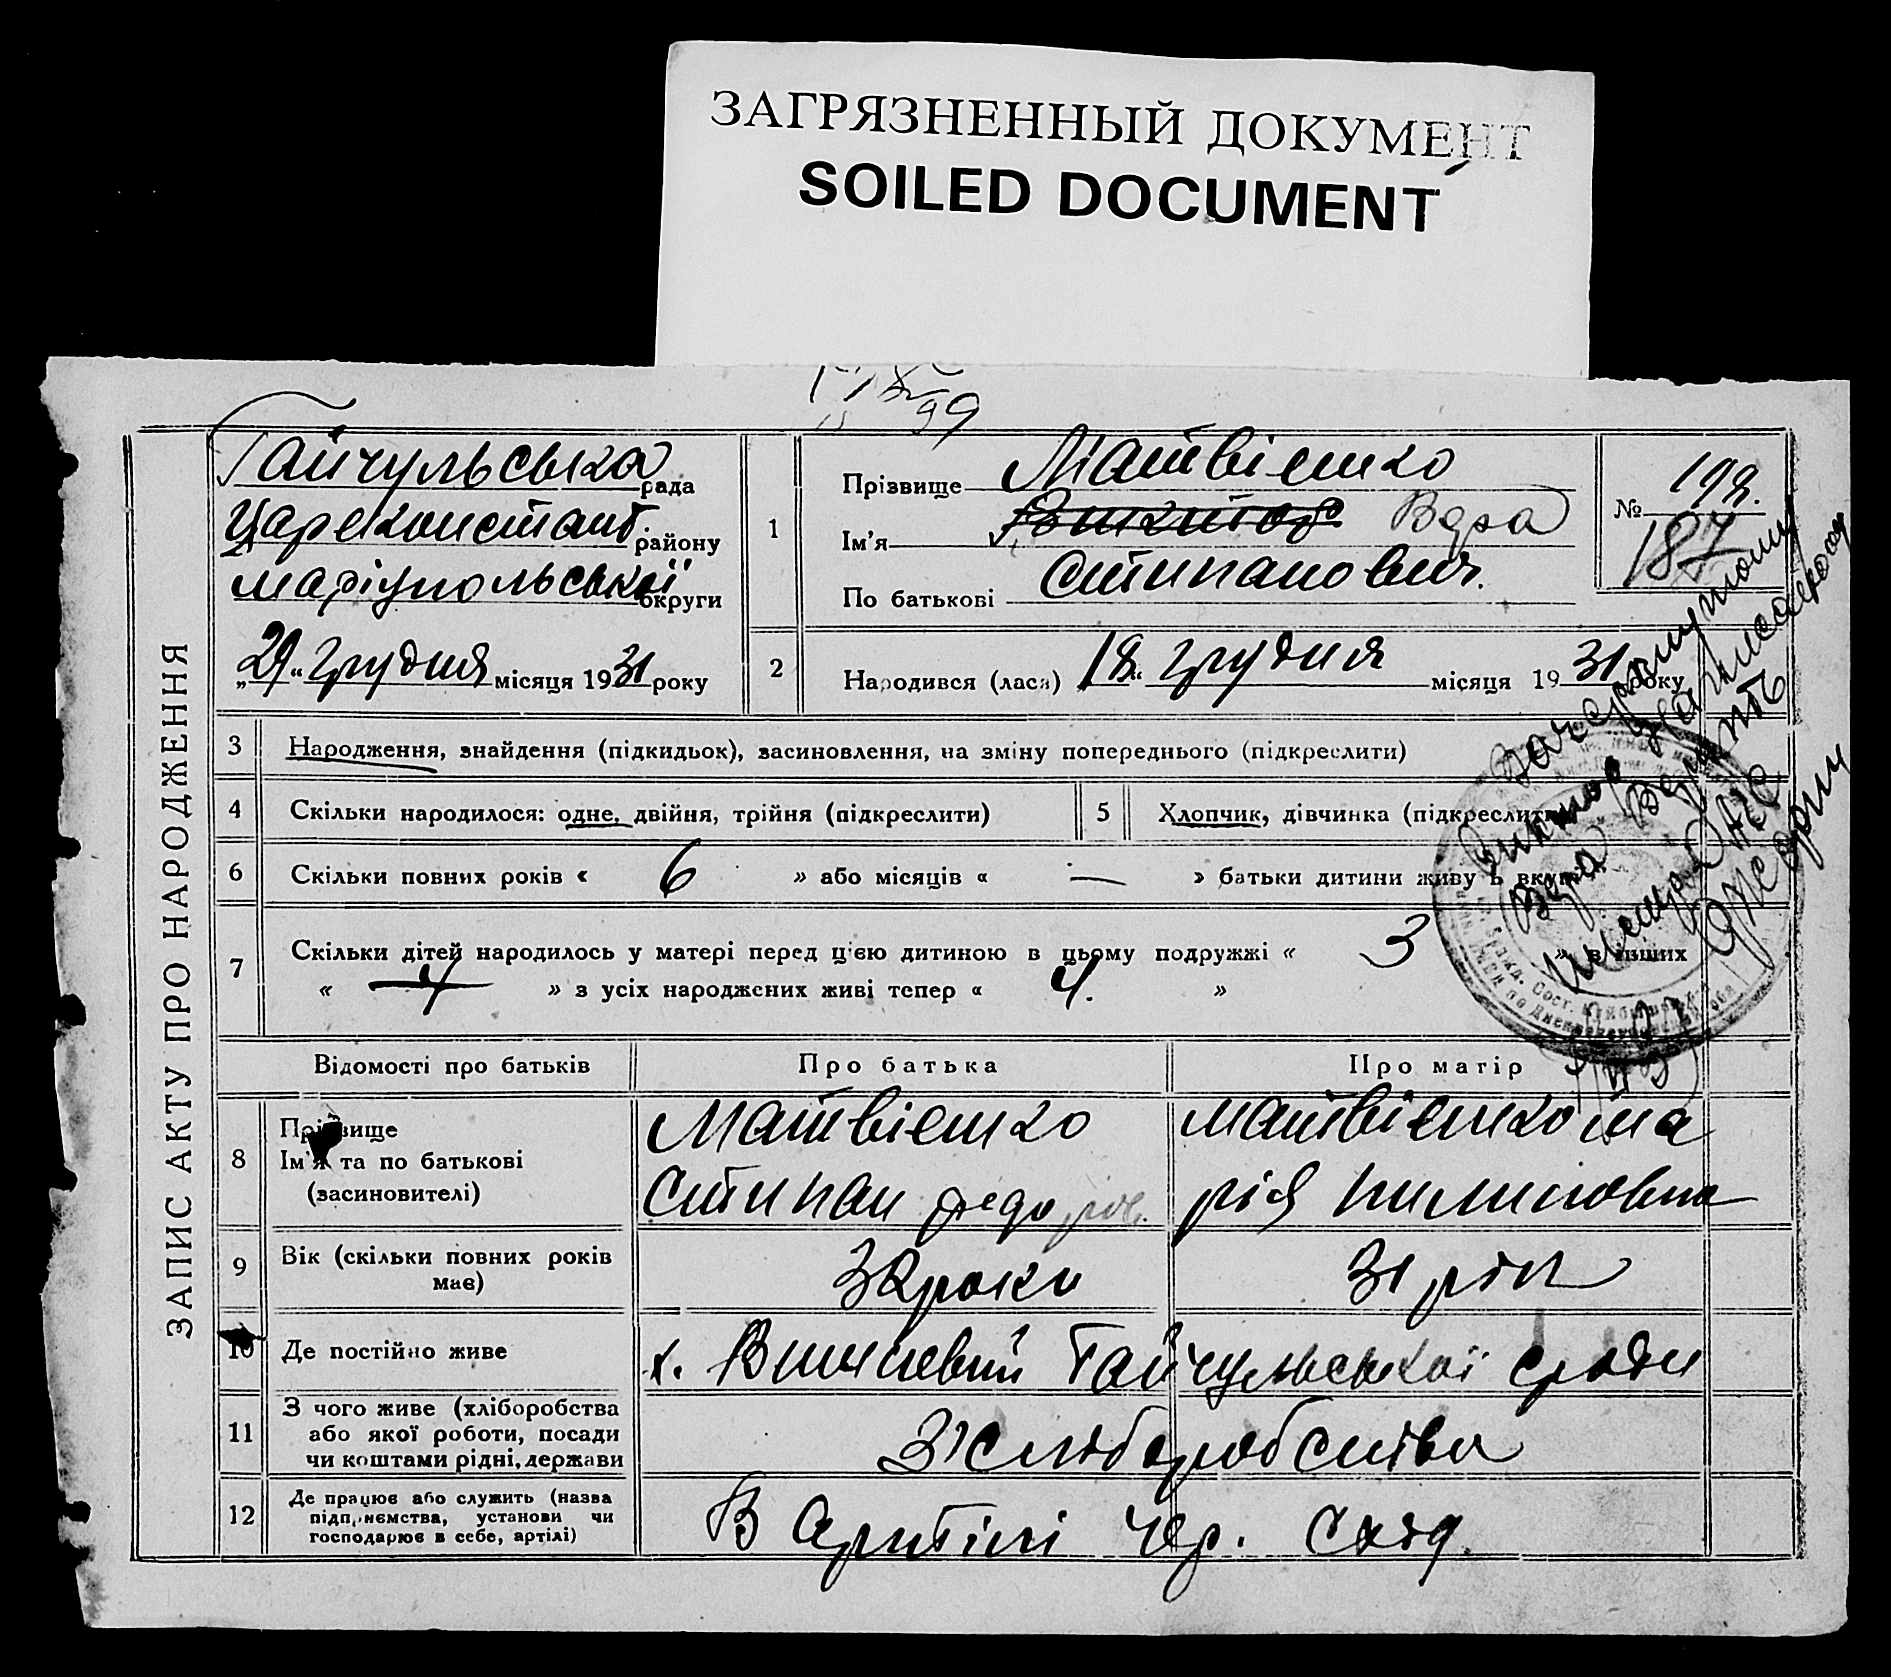 ЗАГРЯЗНЕННЫЙ ДОКУМЕНТ
SOILED DOCUMENT
99
ЗАПИС АКТУ ПРО НАРОДЖЕННЯ
Гайчульська рада
Цареконстант. району
Маріупольської округи
„29“ грудня місяця 1931 року
1
Прізвище Матвієнко
Ім'я Виктор Вера
По батькові Стипанович.
№ 198.
187
2
Народився (лася) „18“ грудня місяця 1931 року
3 Народження, знайдення (підкидьок), засиновлення, на зміну попереднього (підкреслити)
4 Скільки народилося: одне, двійня, трійня (підкреслити)
5 Хлопчик, дівчинка (підкреслити)
6 Скільки повних років « 6 » або місяців « — » батьки дитини живуть вкупі
7 Скільки дітей народилось у матері перед цією дитиною в цьому подружжі « 3 » в інших
« 4 » з усіх народжених живі тепер « 4. »
Зачеркнутому
Виктор
Вера Верить
Відомості про батьків
Про батька
Про матір
8 Прізвище
Ім'я та по батькові
(засиновителі)
Матвієнко
Стипан Федоров.
Матвієнко Ма
рія Пилиповна
9 Вік (скільки повних років
має)
32 роки
31 рік
10 Де постійно живе
х. Вишневий Гайчульської сради
11 З чого живе (хліборобства
або якої роботи, посади
чи коштами рідні, держави
З хліборобства
12 Де працює або служить (назва
підприємства, установи чи
господарює в себе, артілі)
В Артілі Чер. Схід.